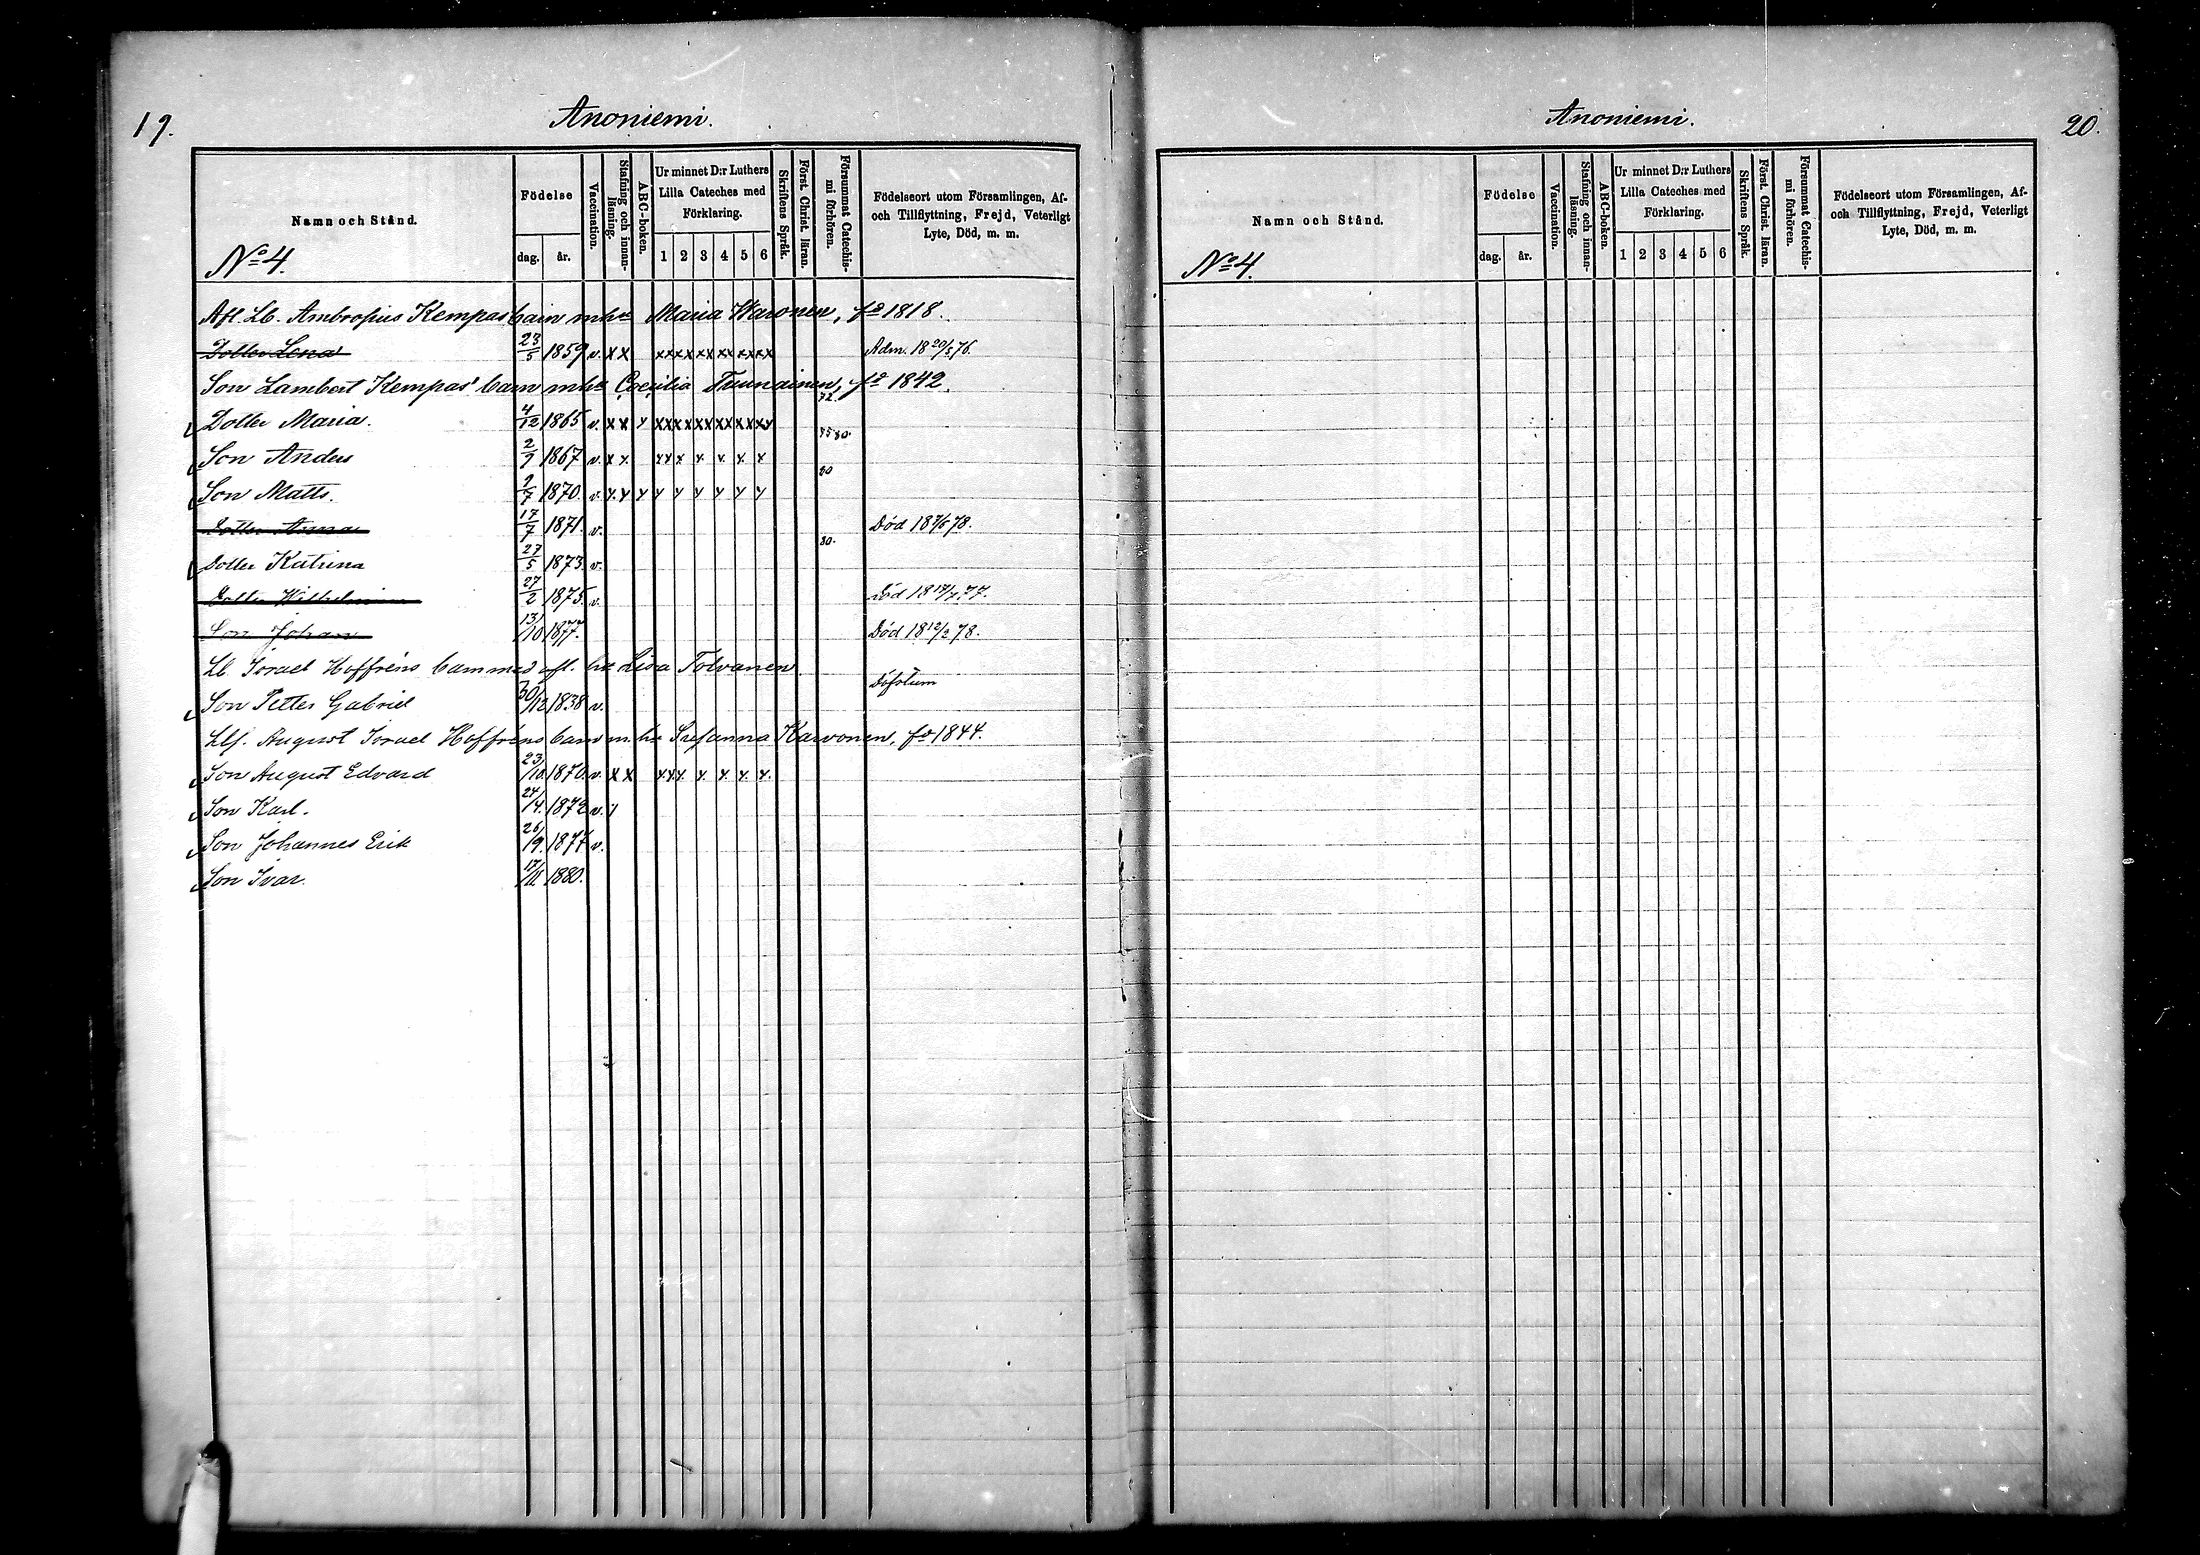 19.
Anoniemi.
Namn och Stånd.
Födelse
dag. år.
Vaccination.
Stafning och innan-läsning.
ABC-boken.
Ur minnet D:r Luthers
Lilla Cateches med
Förklaring.
1 2 3 4 5 6
Skriftens Språk.
Först. Christ. läran.
Försummat Catechis-
mi förhören.
Födelseort utom Församlingen, Af-
och Tillflyttning, Frejd, Veterligt
Lyte, Död, m. m.
No 4.
Afl. Lb. Ambrosius Kempas barn m hu Maria Karvonen, fd 1818.
Dotter Lena 23/5 1859 v. x x xxxx xx xx xxxx Adm. 18 20/5 76.
Son Lambert Kempas' barn m hu Cæcilia Tuunainen, fd 1842.
72.
Dotter Maria. 4/12 1865 v. x x x xx x x xx xx x x xx
75 80.
Son Anders 2/9 1867 v. x x xx x x x x x
80
Son Matts. 9/7 1870. v. x x x x x x x x x
Dotter Anna 17/7 1871. v. Död 18 7/5 78.
80.
Dotter Katrina 27/5 1873. v.
Dotter Wilhelmina 27/2 1875. v. Död 18 17/7 77.
Son Johan 13/10 1877. Död 18 12/2 78.
Lb. Israel Hoffréns barn med afl. hu Lisa Tolvanen
Son Petter Gabriel 30/12 1838 v. Döfstum
Lbf. August Israel Hoffréns barn m. hu Susanna Karvonen, fd 1844.
Son August Edvard 23/10 1870. v. x x xxx x x x x.
Son Karl. 24/4. 1872 v.
Son Johannes Erik 26/9. 1877 v.
Son Ivar. 17/11. 1880.
Anoniemi.
20.
Namn och Stånd.
Födelse
dag. år.
Vaccination.
Stafning och innan-läsning.
ABC-boken.
Ur minnet D:r Luthers
Lilla Cateches med
Förklaring.
1 2 3 4 5 6
Skriftens Språk.
Först. Christ. läran.
Försummat Catechis-
mi förhören.
Födelseort utom Församlingen, Af-
och Tillflyttning, Frejd, Veterligt
Lyte, Död, m. m.
No 4.